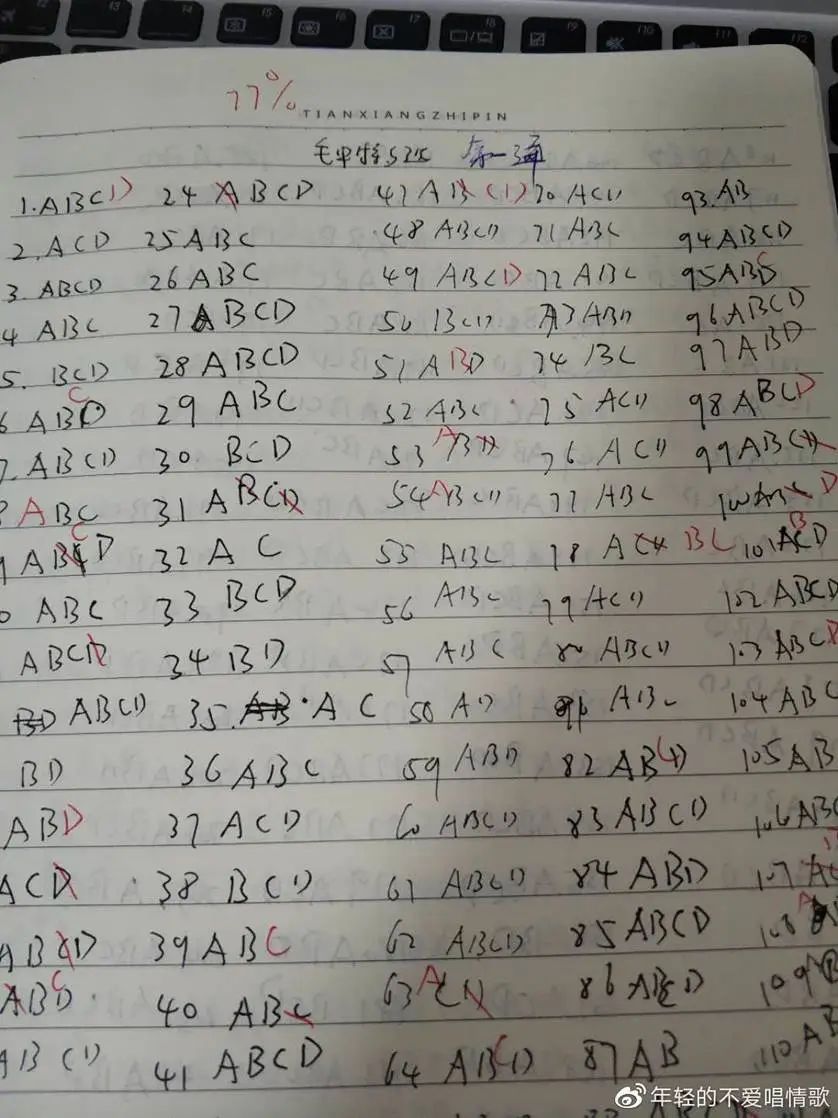 77%
TIANXIANGZHIPIN
第一遍
1.ABCD 24 ABCD 47 AB CD 70 ACD 93.AB
2.ACD 25 ABC 48 ABCD 71 ABC 94 ABCD
3. ABCD 26 ABC 49 ABCD 72 ABC 95 ABCD
4 ABC 27 ABCD 50 BCD 73 ABD 96.ABCD
5. BCD 28 ABCD 51 ABD 74 BC 97 ABD
6 ABCD 29 ABC 52 ABC 75 ACD 98 ABCD
7. ABCD 30 BCD 53 ABD 76 ACD 99 ABCD
8 ABC 31 ABCD 54 ABCD 77 ABC 100 ABCD
9 ABCD 32 AC 55 ABC 78 AC BC 101 ABCD
0 ABC 33 BCD 56 ABC 79 ACD 102 ABCD
ABCD 34 BD 57 ABC 80 ABCD 103 ABCD
BD ABCD 35. AB · AC 58 AD 81 ABC 104 ABC
BD 36 ABC 59 ABD 82 ABCD 105 AB
ABD 37 ACD 60 ABCD 83 ABCD 106 ABC
ACD 38 BCD 61 ABCD 84 ABD 107 AC
ABCD 39 ABC 62 ABCD 85 ABCD 108 A
ABCD 40 ABC 63 ACD 86 ABCD 109
AB CD 41 ABCD 64 ABCD 87 AB 110 AB
@年轻的不爱唱情歌